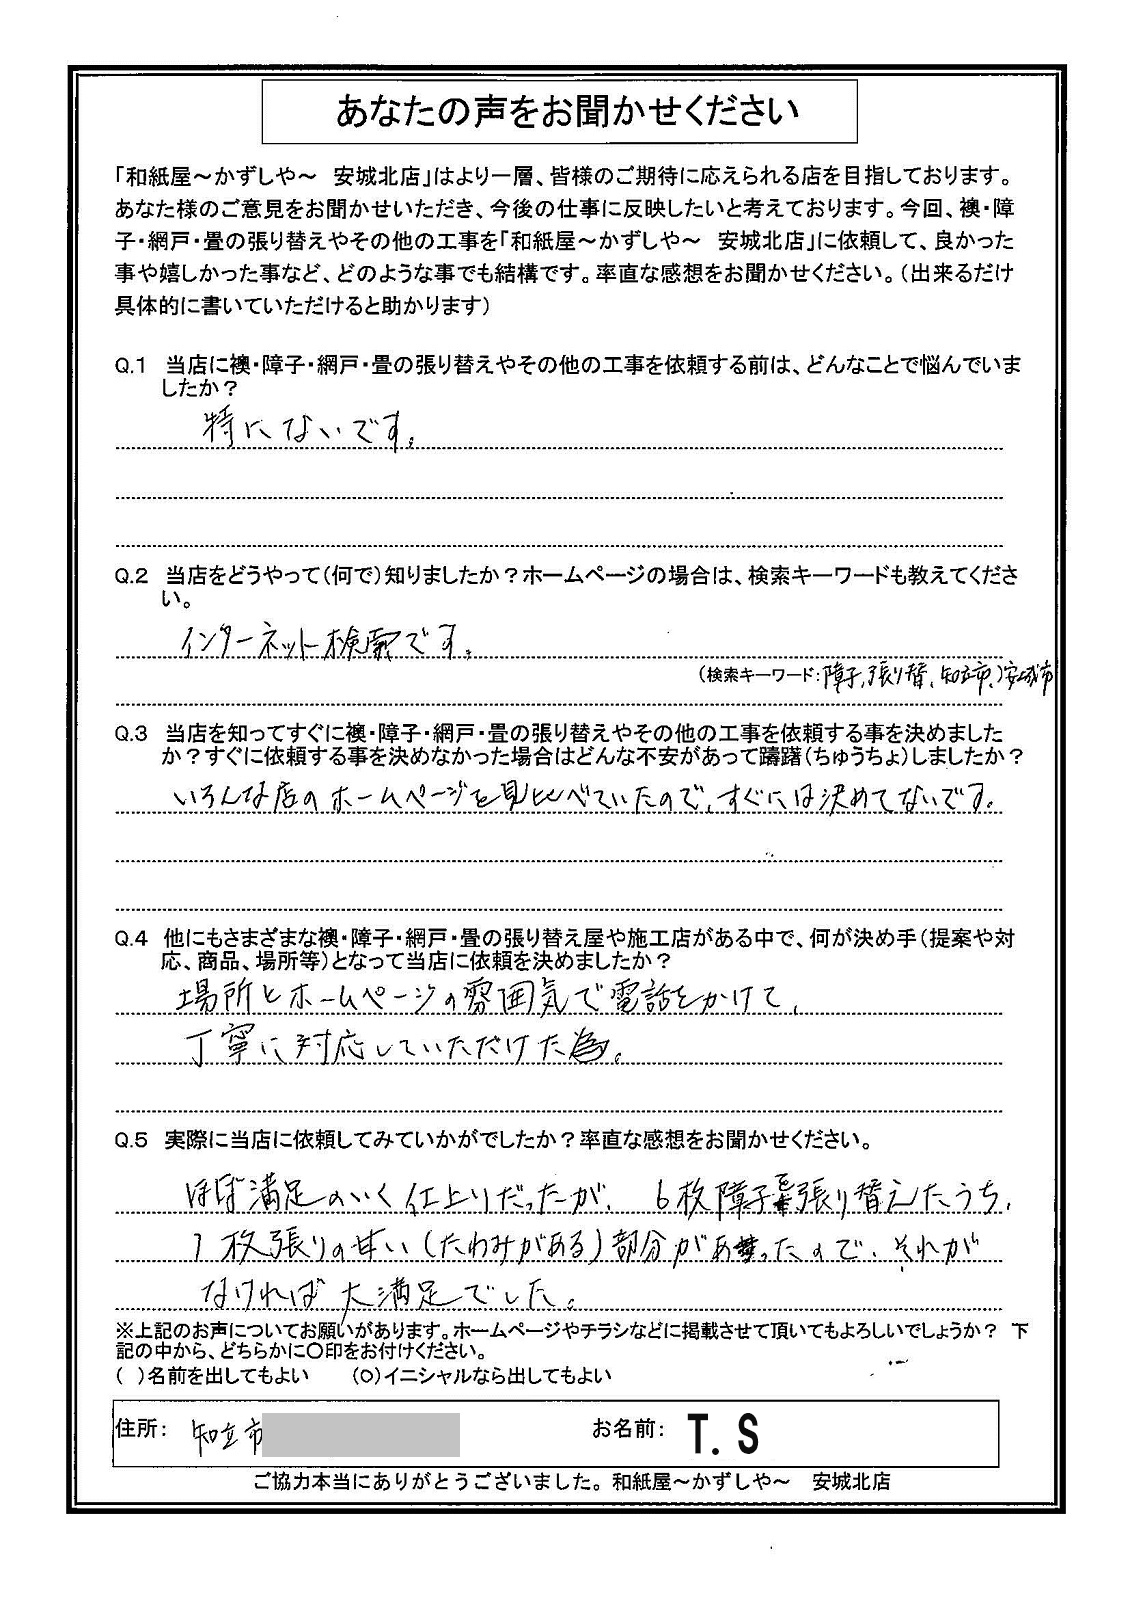 あなたの声をお聞かせください
「和紙屋～かずしや～　安城北店」はより一層、皆様のご期待に応えられる店を目指しております。
あなた様のご意見をお聞かせいただき、今後の仕事に反映したいと考えております。今回、襖・障
子・網戸・畳の張り替えやその他の工事を「和紙屋～かずしや～　安城北店」に依頼して、良かった
事や嬉しかった事など、どのような事でも結構です。率直な感想をお聞かせください。（出来るだけ
具体的に書いていただけると助かります）
Q.1　当店に襖・障子・網戸・畳の張り替えやその他の工事を依頼する前は、どんなことで悩んでいま
したか？
特にないです。
Q.2　当店をどうやって（何で）知りましたか？ホームページの場合は、検索キーワードも教えてくださ
い。
インターネット検索です。
（検索キーワード：障子、張り替、知立市、）安城市
Q.3　当店を知ってすぐに襖・障子・網戸・畳の張り替えやその他の工事を依頼する事を決めました
か？すぐに依頼する事を決めなかった場合はどんな不安があって躊躇（ちゅうちょ）しましたか？
いろんな店のホームページを見比べていたので、すぐには決めてないです。
Q.4　他にもさまざまな襖・障子・網戸・畳の張り替え屋や施工店がある中で、何が決め手（提案や対
応、商品、場所等）となって当店に依頼を決めましたか？
場所とホームページの雰囲気で電話をかけて、
丁寧に対応していただけた為。
Q.5　実際に当店に依頼してみていかがでしたか？率直な感想をお聞かせください。
ほぼ満足のいく仕上りだったが、6枚障子を張り替えたうち、
1枚張りの甘い（たわみがある）部分があったので、それが
なければ大満足でした。
※上記のお声についてお願いがあります。ホームページやチラシなどに掲載させて頂いてもよろしいでしょうか？　下
記の中から、どちらかに○印をお付けください。
（　）名前を出してもよい　　（○）イニシャルなら出してもよい
住所：　知立市　お名前：　T. S
ご協力本当にありがとうございました。和紙屋～かずしや～　安城北店